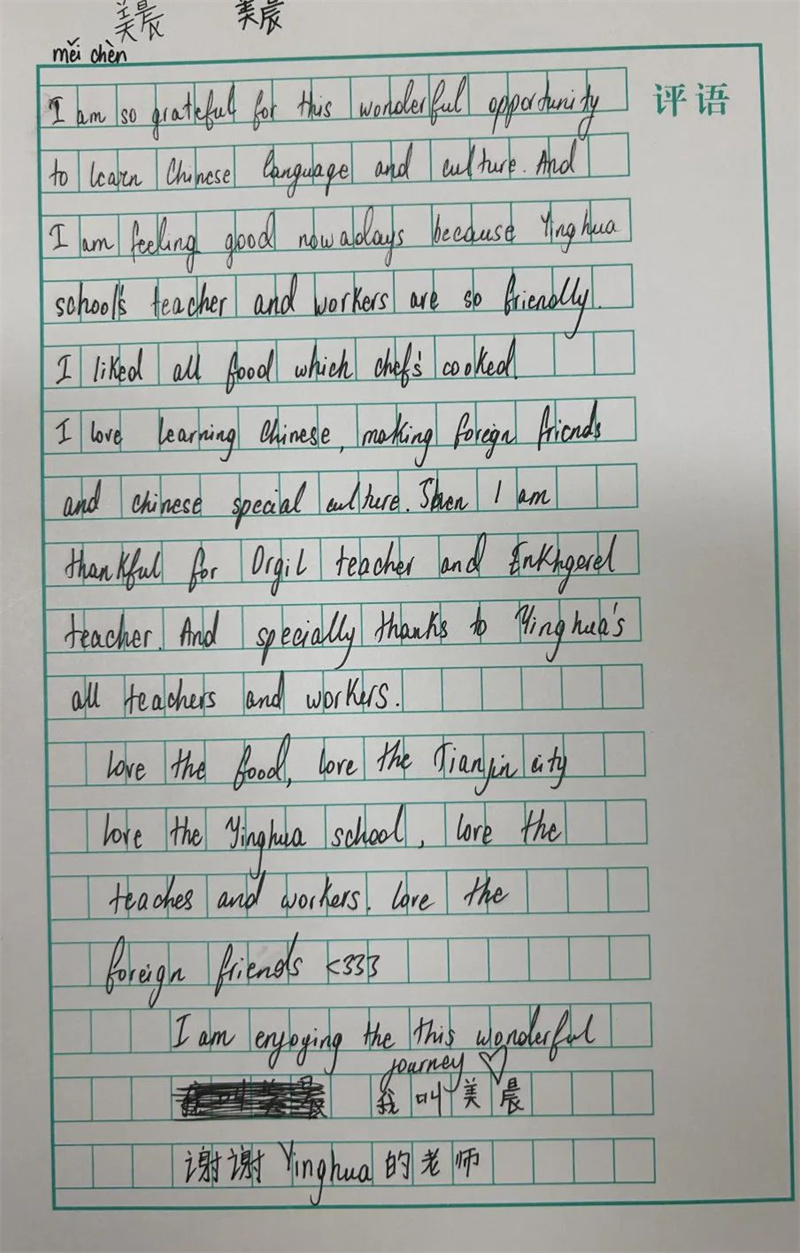 美晨 美晨
měi chèn
评语
I am so grateful for this wonderful opportunity
to learn Chinese language and culture. And
I am feeling good nowadays because Yinghua
school's teacher and workers are so friendly.
I liked all food which chef's cooked.
I love learning Chinese, making foreign friends
and chinese special culture. Then I am
thankful for Orgil teacher and Enkhgerel
teacher. And specially thanks to Yinghua's
all teachers and workers.
love the food, love the Tianjin city
love the Yinghua school, love the
teaches and workers. love the
foreign friends <333
I am enjoying the this wonderful
journey ♡
我叫美晨
谢谢Yinghua的老师